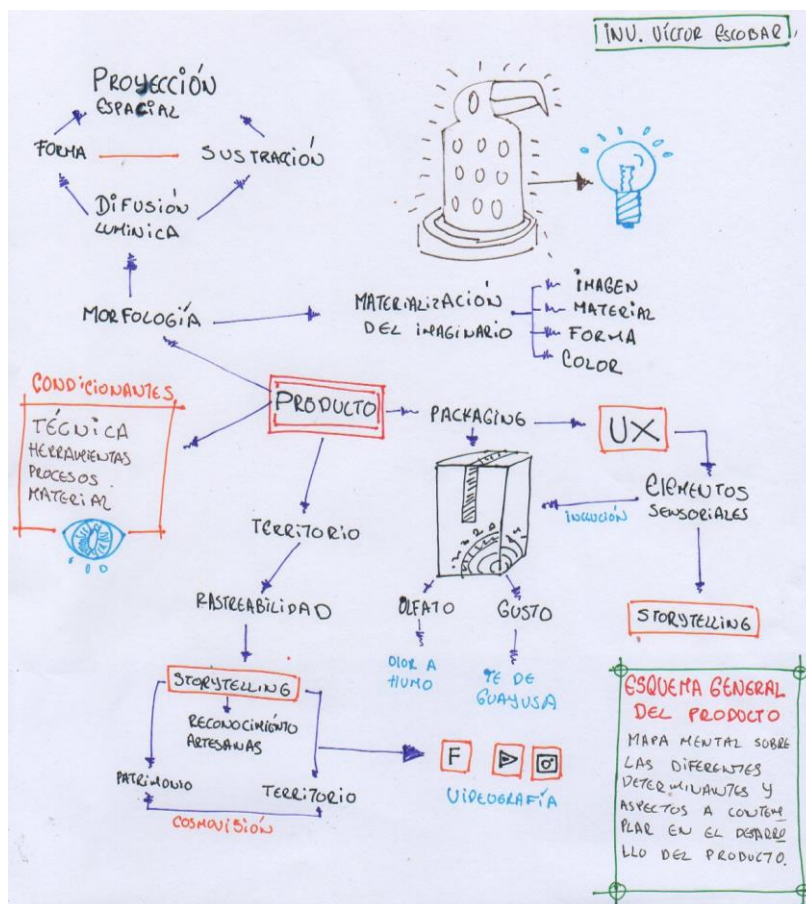 INV. VÍCTOR ESCOBAR
PROYECCIÓN
ESPACIAL
FORMA
SUSTRACCIÓN
DIFUSIÓN
LUMINICA
MORFOLOGÍA
MATERIALIZACIÓN
DEL IMAGINARIO
IMAGEN
MATERIAL
FORMA
COLOR
CONDICIONANTES
TÉCNICA
HERRAMIENTAS
PROCESOS
MATERIAL
PRODUCTO
PACKAGING
UX
ELEMENTOS
SENSORIALES
INCLUCIÓN
TERRITORIO
RASTREABILIDAD
OLFATO
GUSTO
STORYTELLING
OLOR A
HUMO
TE DE
GUAYUSA
STORYTELLING
RECONOCIMIENTO
ARTESANAS
PATRIMONIO
TERRITORIO
COSMOVISIÓN
F
VIDEOGRAFÍA
ESQUEMA GENERAL
DEL PRODUCTO
MAPA MENTAL SOBRE
LAS DIFERENTES
DETERMINANTES Y
ASPECTOS A CONTEM
PLAR EN EL DESARRO
LLO DEL PRODUCTO.